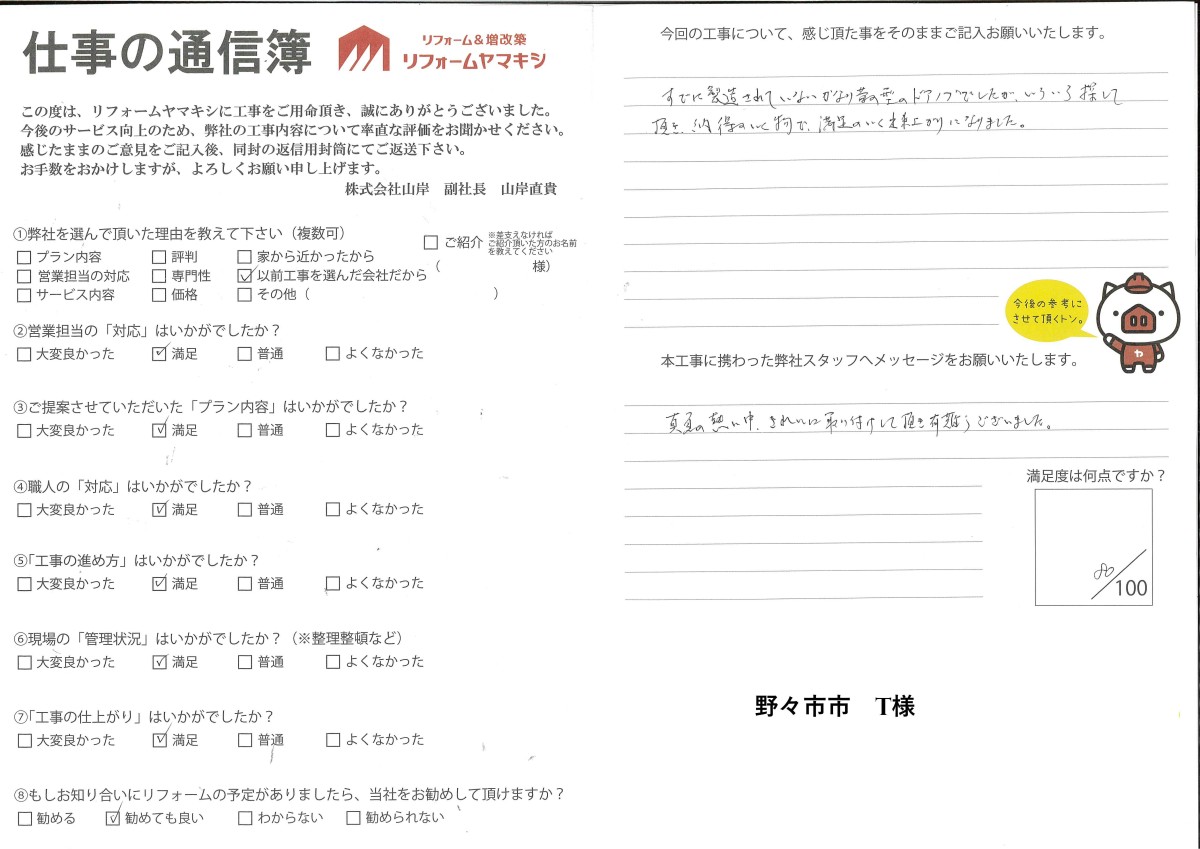 仕事の通信簿
リフォーム&増改築
リフォームヤマキシ
この度は、リフォームヤマキシに工事をご用命頂き、誠にありがとうございました。
今後のサービス向上のため、弊社の工事内容について率直な評価をお聞かせください。
感じたままのご意見をご記入後、同封の返信用封筒にてご返送下さい。
お手数をおかけしますが、よろしくお願い申し上げます。
株式会社山岸 副社長 山岸直貴
①弊社を選んで頂いた理由を教えて下さい(複数可)
□ プラン内容 □ 評判 □ 家から近かったから
□ ご紹介 ※差支えなければ
ご紹介頂いた方のお名前
を教えてください
( 様)
□ 営業担当の対応 □ 専門性 ☑ 以前工事を選んだ会社だから
□ サービス内容 □ 価格 □ その他( )
②営業担当の「対応」はいかがでしたか?
□ 大変良かった ☑ 満足 □ 普通 □ よくなかった
③ご提案させていただいた「プラン内容」はいかがでしたか?
□ 大変良かった ☑ 満足 □ 普通 □ よくなかった
④職人の「対応」はいかがでしたか?
□ 大変良かった ☑ 満足 □ 普通 □ よくなかった
⑤「工事の進め方」はいかがでしたか?
□ 大変良かった ☑ 満足 □ 普通 □ よくなかった
⑥現場の「管理状況」はいかがでしたか?(※整理整頓など)
□ 大変良かった ☑ 満足 □ 普通 □ よくなかった
⑦「工事の仕上がり」はいかがでしたか?
□ 大変良かった ☑ 満足 □ 普通 □ よくなかった
⑧もしお知り合いにリフォームの予定がありましたら、当社をお勧めして頂けますか?
□ 勧める ☑ 勧めても良い □ わからない □ 勧められない
今回の工事について、感じ頂た事をそのままご記入お願いいたします。
すでに製造されていないかなり昔の型のドアノブでしたが、いろいろ探して
頂き、納得のいく物で、満足のいく出来上がりになりました。
今後の参考に
させて頂くトン。
ヤ
本工事に携わった弊社スタッフへメッセージをお願いいたします。
真夏の熱い中、きれいに取り付けして頂き有難うございました。
満足度は何点ですか?
80/100
野々市市 T様